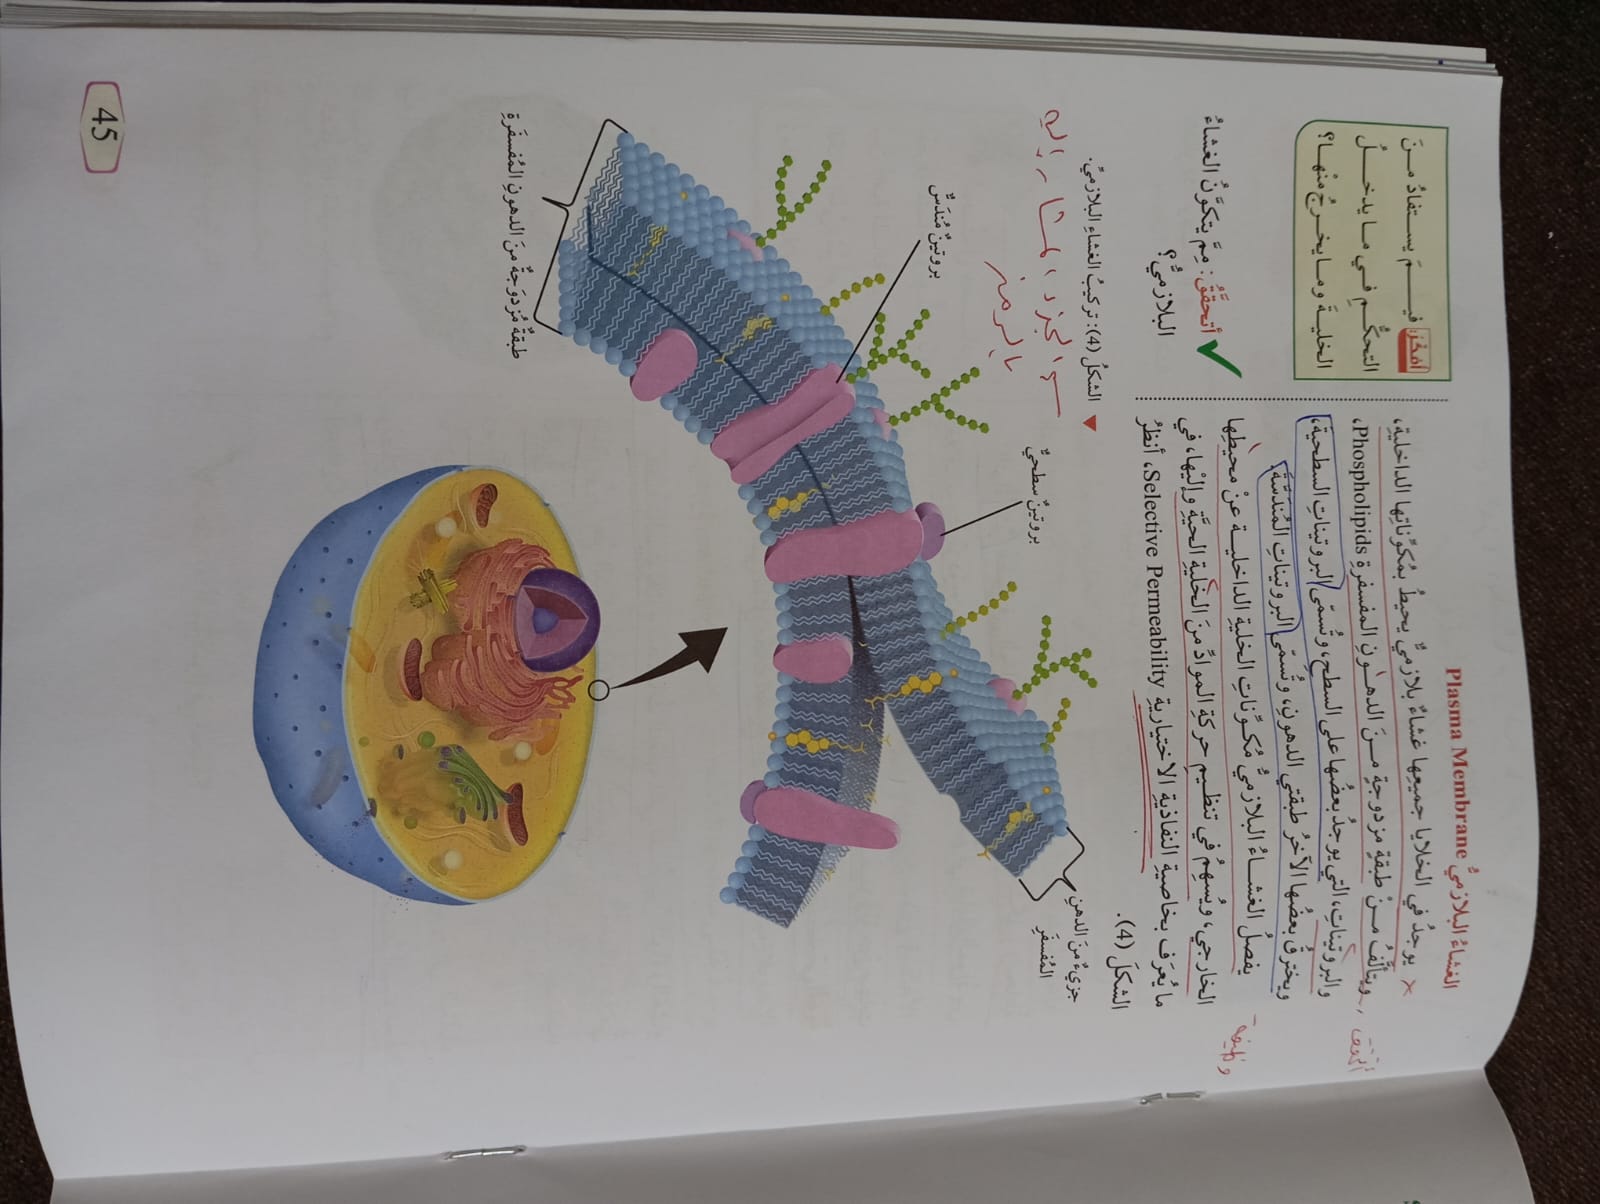 الغشاءُ البلازميُّ Plasma Membrane
يوجدُ في الخلايا جميعِها غشاءٌ بلازميٌّ يحيطُ بمُكوِّناتِها الداخليةِ،
ويتألَّفُ مـنْ طبقةٍ مزدوجةٍ مـنَ الدهـونِ المفسفرةِ Phospholipids،
والبروتيناتِ، التي يوجدُ بعضُها على السطحِ، وتُسمّى البروتيناتِ السطحيةَ،
ويخترقُ بعضُها الآخرُ طبقتي الدهونِ، وتُسمّى البروتيناتِ المُندَسَّةَ.
يفصلُ الغشـاءُ البلازميُّ مُكوِّناتِ الخليةِ الداخليـةَ عنْ محيطِها
الخارجي، ويُسهِمُ في تنظيمِ حركةِ الموادِّ منَ الخليةِ الحيَّةِ وإليْها، في
ما يُعرَفُ بخاصيةِ النفاذيةِ الاختياريةِ Selective Permeability، أنظرُ
الشكلَ (4).
وظيفة
أفكِّرُ: فيـمَ يستفادُ مـنَ
التحكُّمِ فـي مـا يدخـلُ
الخليةَ ومـا يخـرجُ منْهـا؟
أتحقَّقُ: مِمَّ يتكوَّنُ الغشاءُ
البلازميُّ؟
الشكلُ (4): تركيبُ الغشاءِ البلازميِّ.
جزيءٌ منَ الدهنِ
المُفسفَرِ
بروتينٌ سطحيٌّ
بروتينٌ مُندَسٌّ
طبقةٌ مُزدوَجةٌ منَ الدهونِ المُفسفَرةِ
45